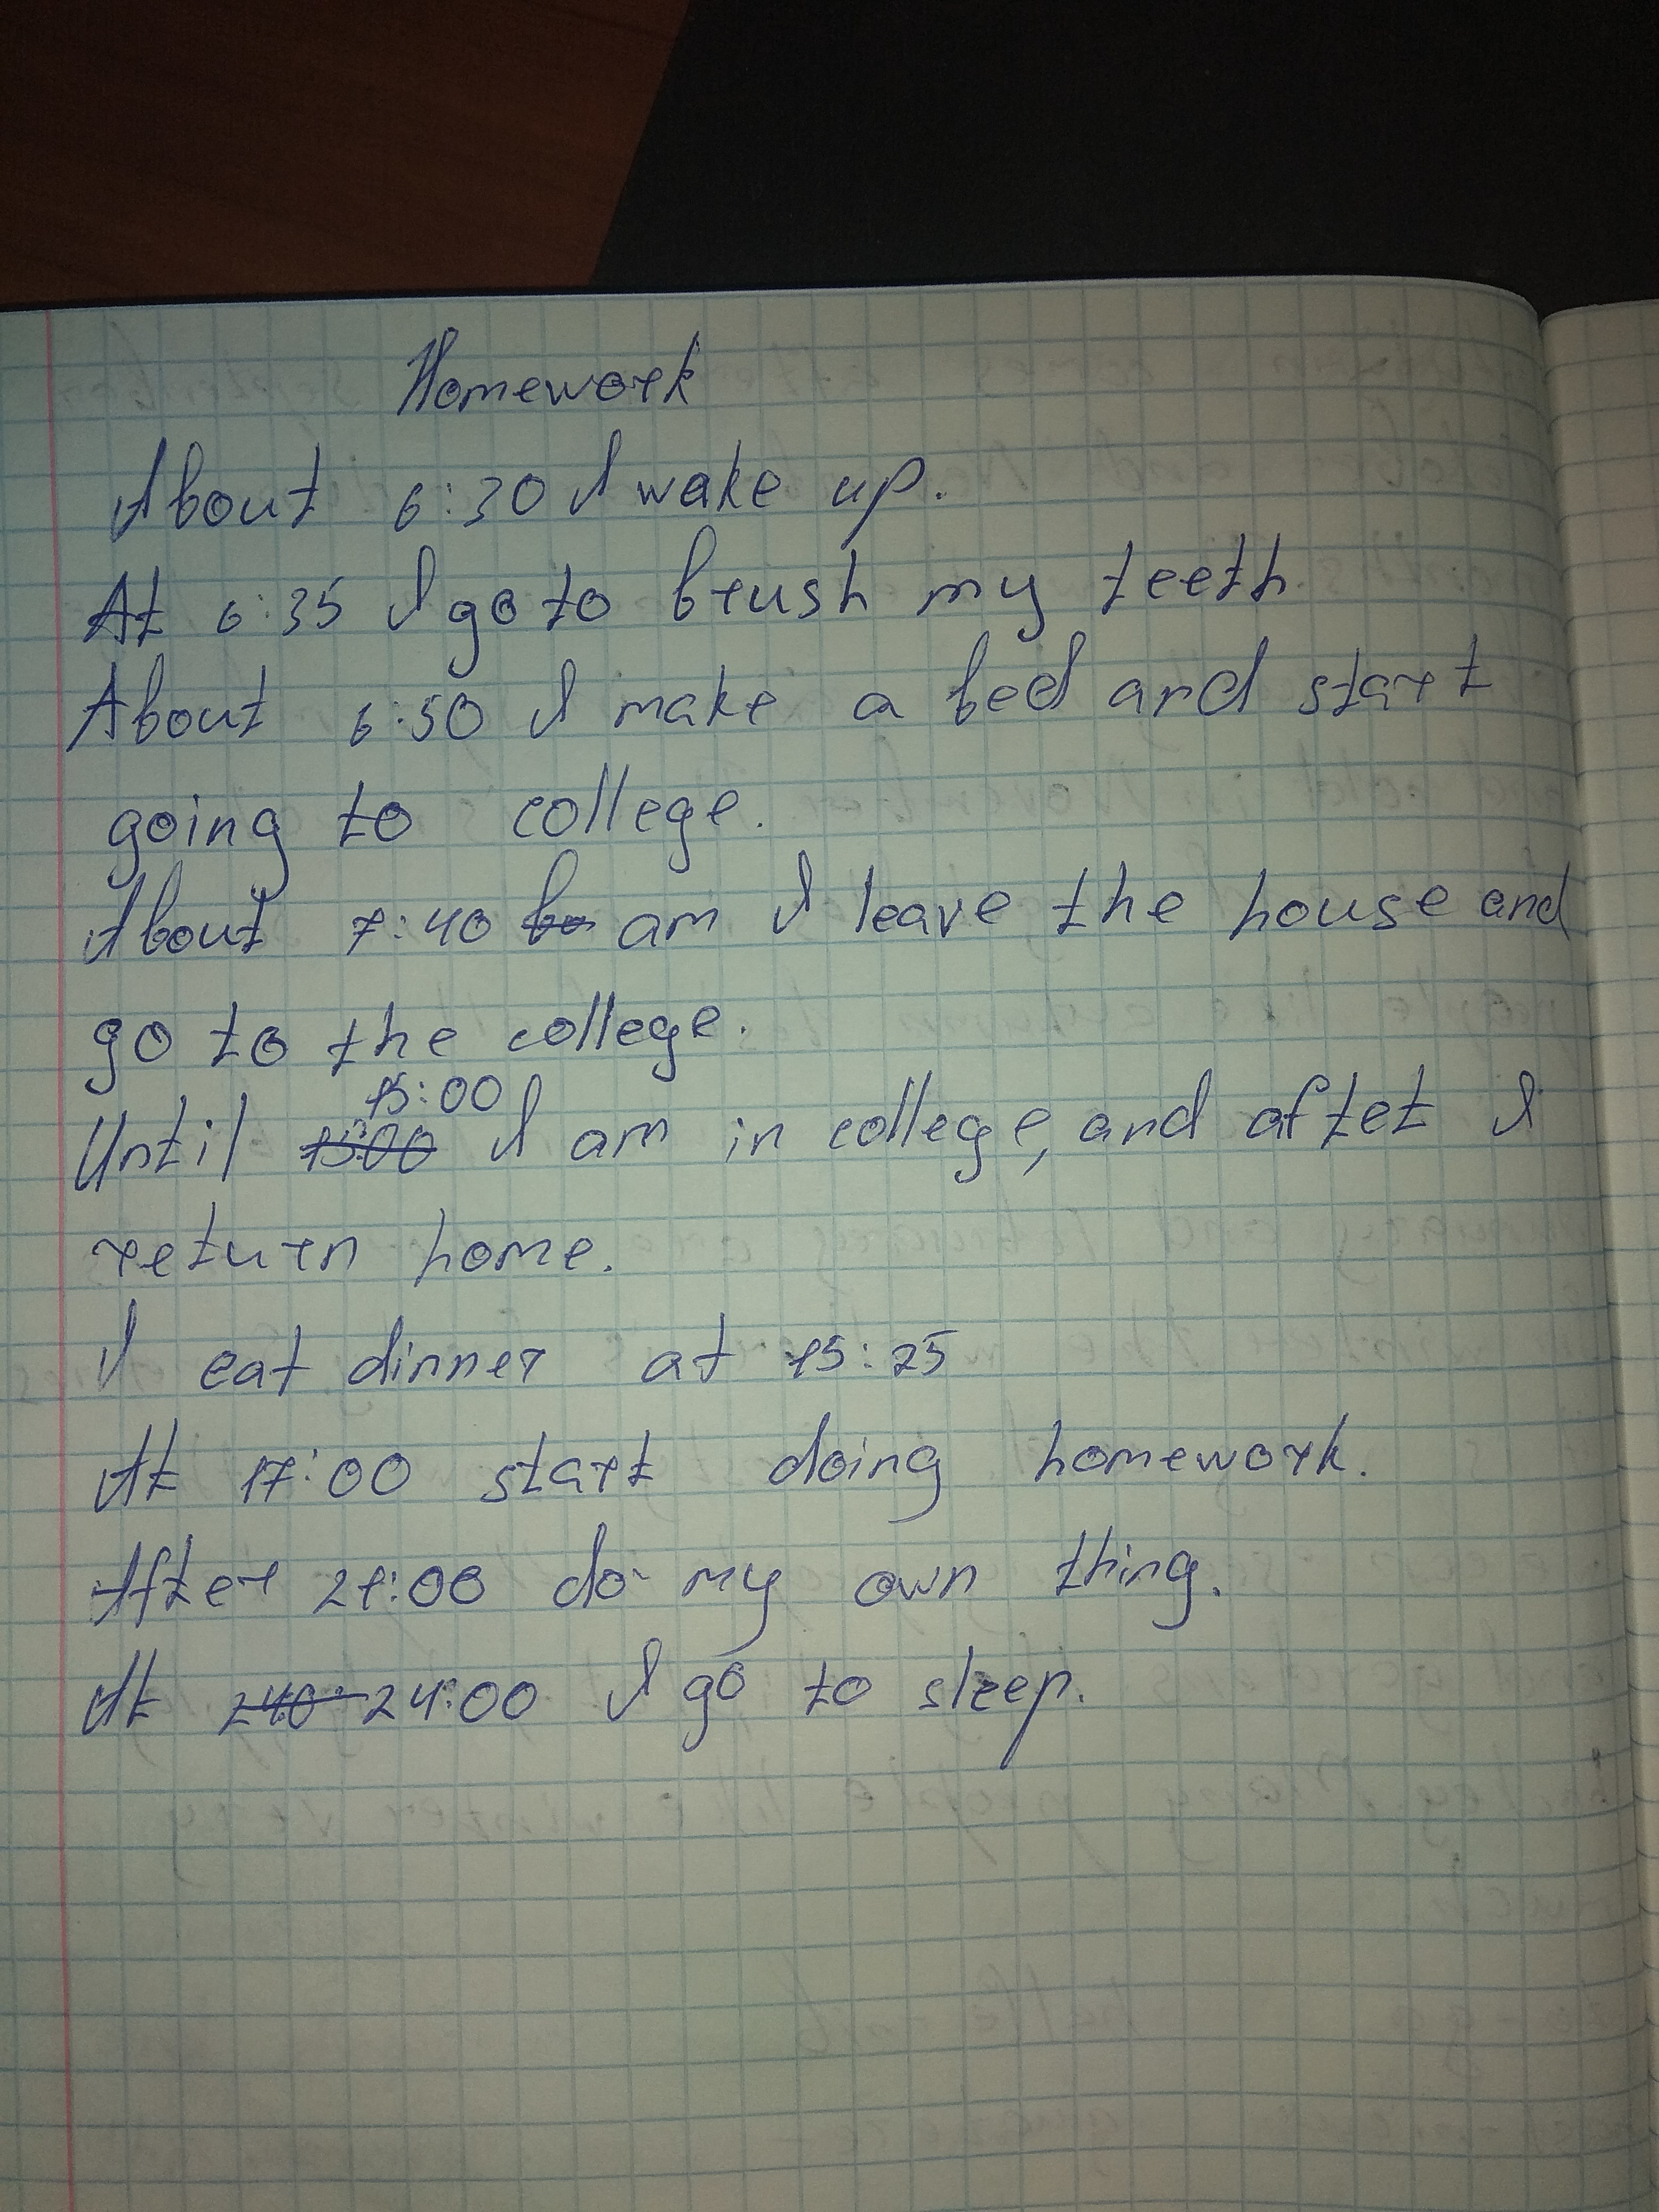 Homework
About 6:30 I wake up.
At 6:35 I go to brush my teeth
About 6:50 I make a bed and start
going to college.
About 7:40 am I leave the house and
go to the college.
15:00
Until 15:00 I am in college, and after I
return home.
I eat dinner at 15:25
At 17:00 start doing homework.
After 21:00 do my own thing.
At 240 24:00 I go to sleep.